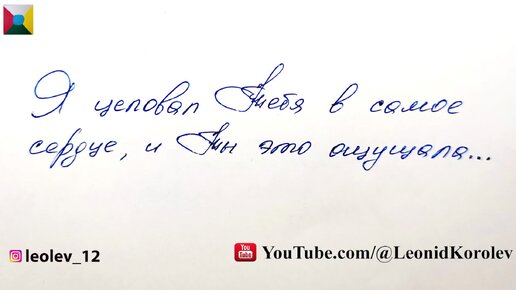 Я целовал Тебя в самое
сердце, и Ты это ощущала...
leolev_12
You Tube YouTube.com/@LeonidKorolev